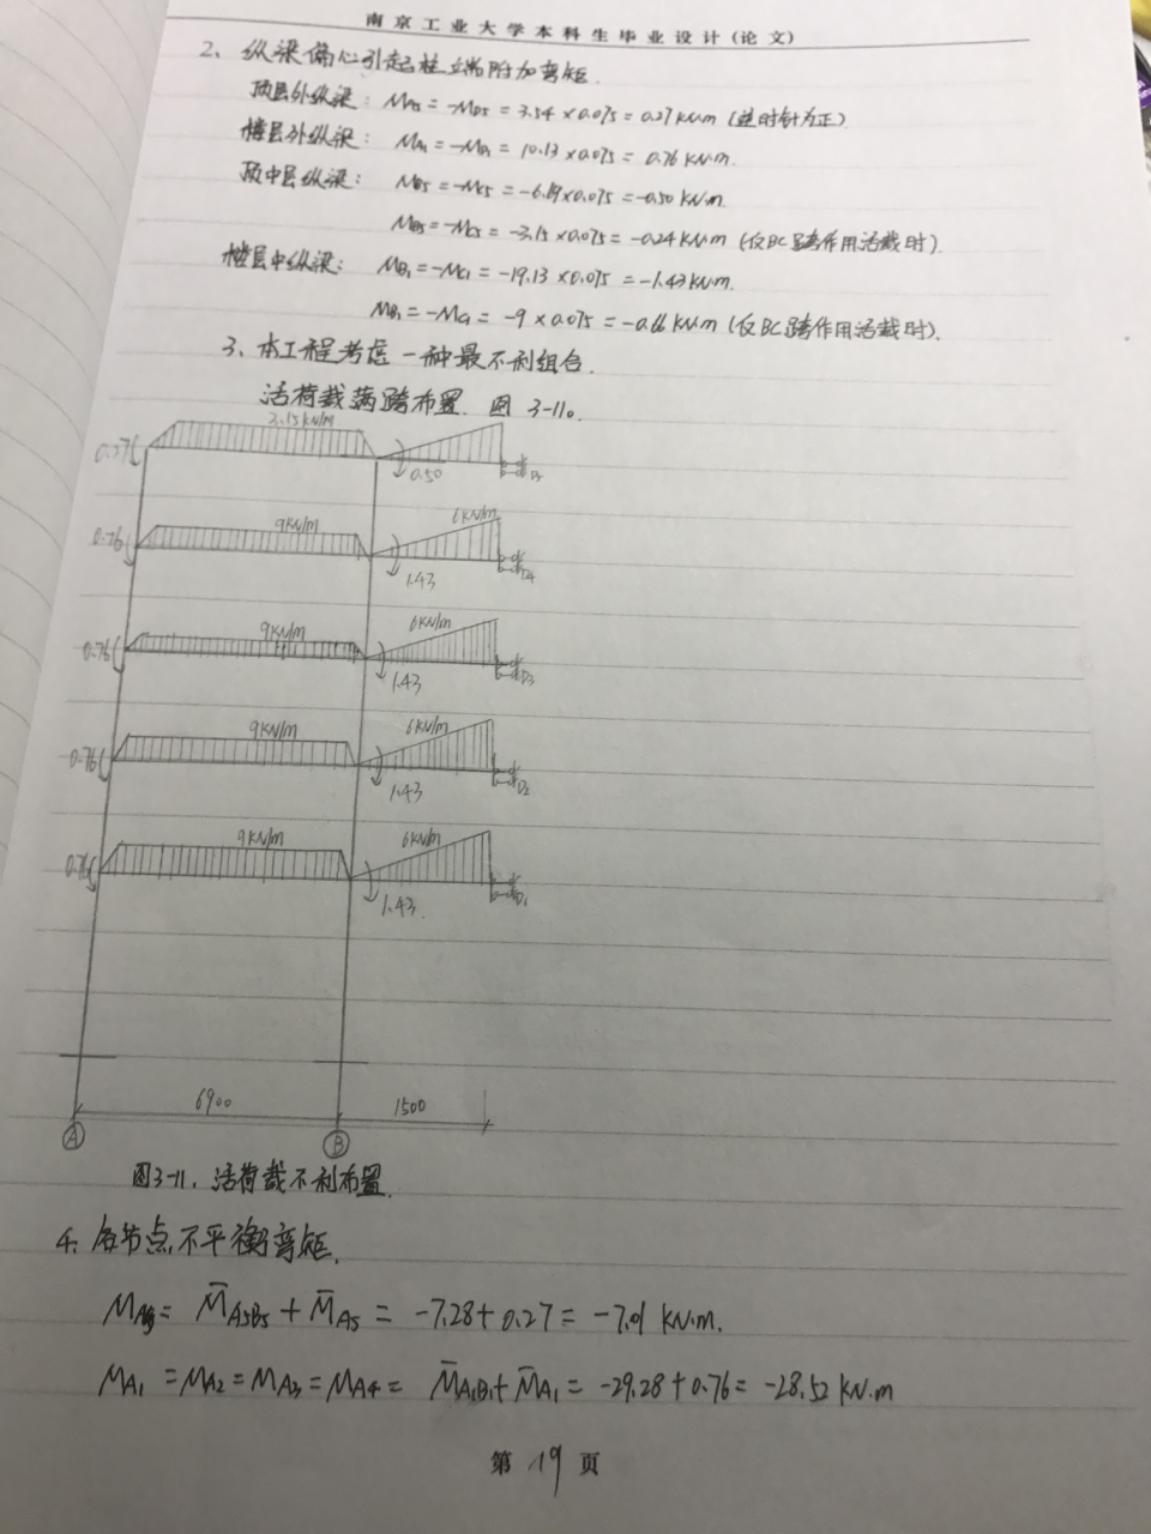 南京工业大学本科生毕业设计(论文)
2、纵梁偏心引起柱端附加弯矩.
顶层外纵梁: MA5 = -MD5 = 3.54×0.075 = 0.27 kN·m (逆时针为正)
楼层外纵梁: MA1 = -MD1 = 10.13×0.075 = 0.76 kN·m.
顶中层纵梁: MB5 = -MC5 = -6.69×0.075 = -0.50 kN·m.
MB5 = -MC5 = -3.15×0.075 = -0.24 kN·m (仅BC跨作用活载时).
楼层中纵梁: MB1 = -MC1 = -19.13×0.075 = -1.43 kN·m.
MB1 = -MC1 = -9×0.075 = -0.66 kN·m (仅BC跨作用活载时).
3、本工程考虑一种最不利组合.
活荷载满跨布置. 图 3-11。
3.15kN/m
0.27 0.50 D5
9kN/m 6kN/m
0.76 1.43 D4
9kN/m 6kN/m
0.76 1.43 D3
9kN/m 6kN/m
0.76 1.43 D2
9kN/m 6kN/m
0.76 1.43. D1
6900 1500
A B
图3-11. 活荷载不利布置.
4. 各节点不平衡弯矩.
MA5 = M̄A5B5 + M̄A5 = -7.28+0.27 = -7.01 kN·m.
MA1 = MA2 = MA3 = MA4 = M̄A1B1 + M̄A1 = -29.28+0.76 = -28.52 kN·m
第 19 页